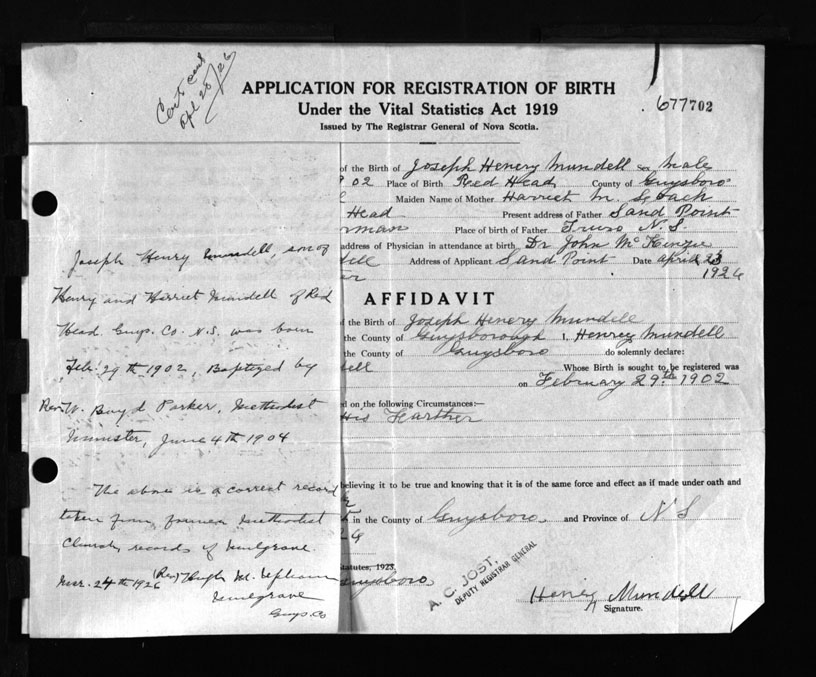 Cert sent
Apl 28/26
APPLICATION FOR REGISTRATION OF BIRTH
Under the Vital Statistics Act 1919
Issued by The Registrar General of Nova Scotia.
677702
of the Birth of Joseph Henery Mundell Sex Male
02 Place of Birth Red Head County of Guysboro
Maiden Name of Mother Harriet M.
Head Present address of Father Sand Point
rman Place of birth of Father Truro N.S.
address of Physician in attendance at birth Dr John Mc
dell Address of Applicant Sand Point Date April 23
1926
AFFIDAVIT
of the Birth of Joseph Henery Mundell
the County of Guysborough I, Henrey Mundell
the County of Guysboro do solemnly declare:
dell Whose Birth is sought to be registered was
on February 29th 1902
ed on the following Circumstances:—
His Farther
believing it to be true and knowing that it is of the same force and effect as if made under oath and
in the County of Guysboro, and Province of N S
26
Statutes, 1923.
Guysboro,
A. C. JOST,
DEPUTY REGISTRAR GENERAL
Henrey Mundell
Signature.
Joseph Henry Mundell, son of
Henry and Harriet Mundell of Red
Head Guys. Co. N.S. was born
Feb. 29th 1902, Baptized by
Rev. W. Boyd Parker, Methodist
Minister, June 4th 1904
The above is a correct record
taken from former Methodist
Church records of Mulgrave.
Mar. 24th 1926 (Rev.) Hugh M. Upham
Mulgrave
Guys. Co